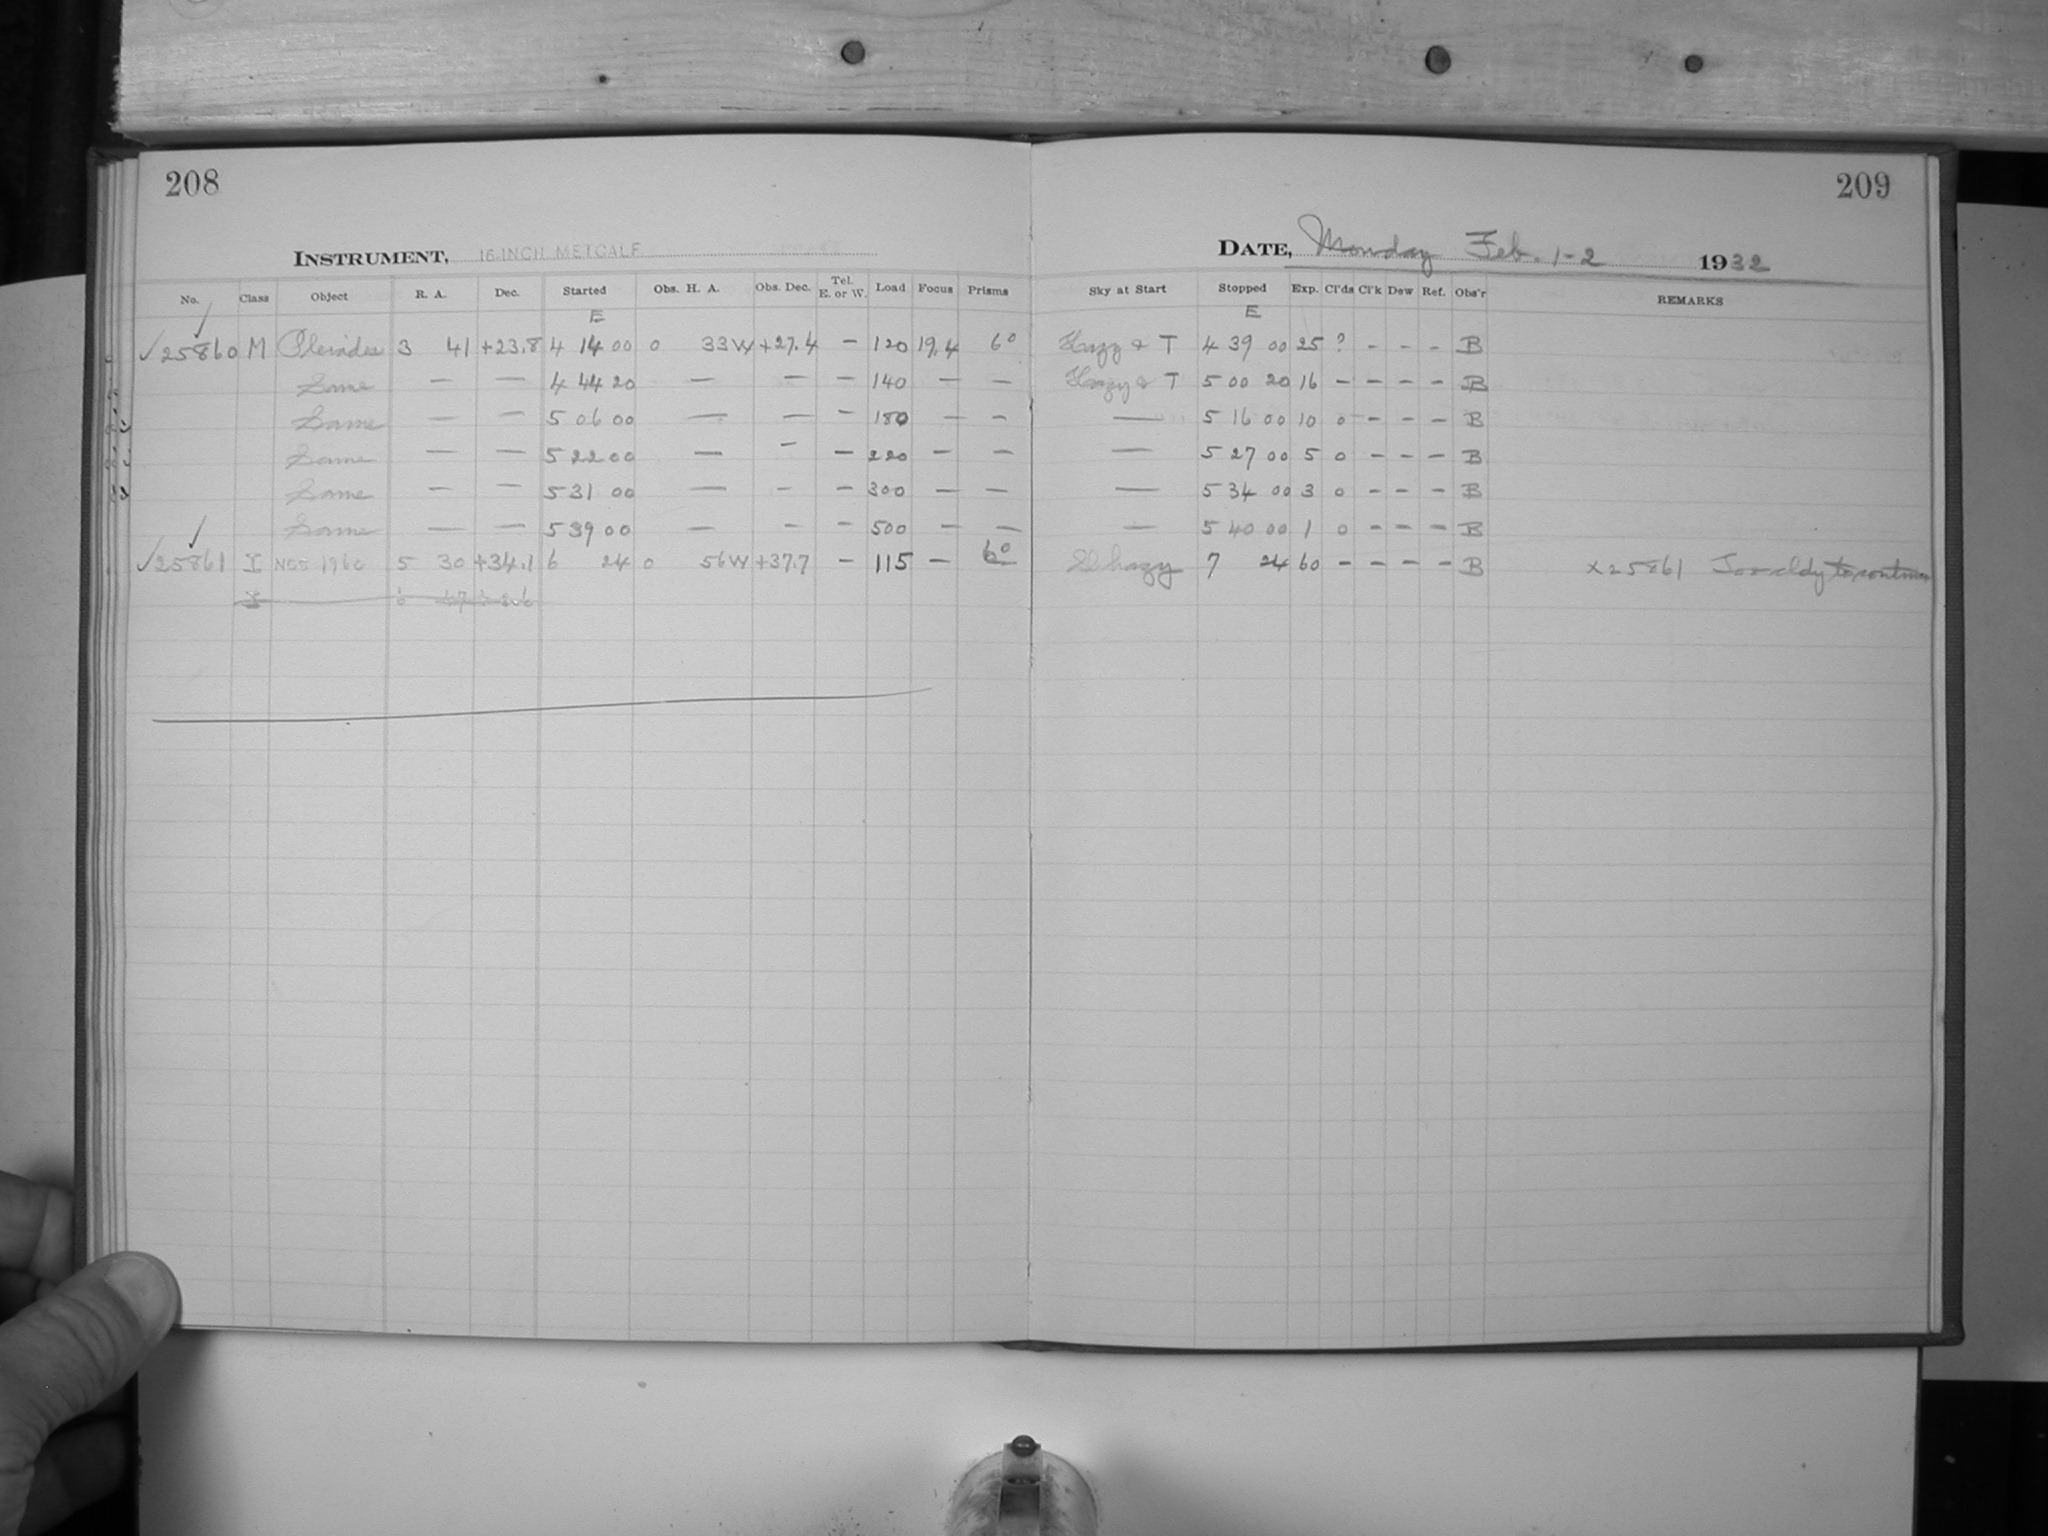 208
INSTRUMENT, 16-INCH METCALF
No. Class Object R. A. Dec. Started Obs. H. A. Obs. Dec. Tel. E. or W. Load Focus Prisms
E
✓25860 M Pleiades 3 41 +23.8 4 14 00 0 33W +27.4 — 120 19.4 6°
Same — — 4 44 20 — — — 140 — —
Same — — 5 06 00 — — — 180 — —
Same — — 5 22 00 — — — 220 — —
Same — — 5 31 00 — — — 300 — —
Same — — 5 39 00 — — — 500 — —
✓25861 I NGS 1960 5 30 +34.1 6 24 0 56W +37.7 — 115 — 6°
I 6
209
DATE, Monday Feb. 1-2 1932
Sky at Start Stopped Exp. Cl'ds Cl'k Dew Ref. Obs'r REMARKS
E
Hazy & T 4 39 00 25 ? - - - B
Hazy & T 5 00 20 16 - - - - B
— 5 16 00 10 0 - - - B
— 5 27 00 5 0 - - - B
— 5 34 00 3 0 - - - B
— 5 40 00 1 0 - - - B
Sl hazy 7 24 60 - - - - B x25861 Too cldy to continue